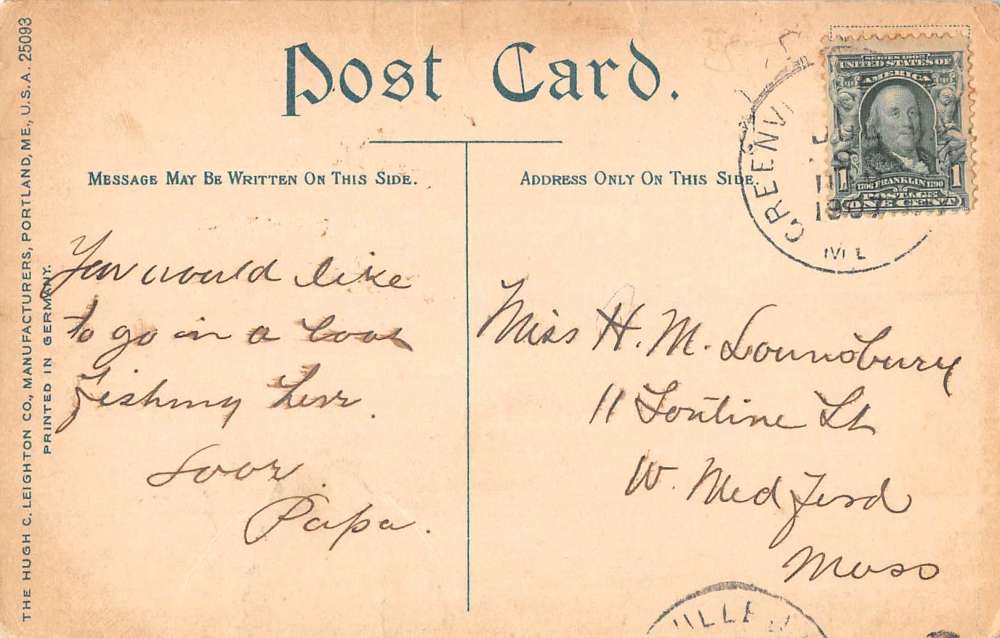 THE HUGH C. LEIGHTON CO., MANUFACTURERS, PORTLAND, ME., U.S.A. 25093
PRINTED IN GERMANY.
Post Card.
MESSAGE MAY BE WRITTEN ON THIS SIDE.
ADDRESS ONLY ON THIS SIDE
You would like
to go in a boat
fishing here.
Papa.
Miss H. M. Lounsbury
11 St
W. Medford
Mass
GREENVI
1907
ME
SERIES 1902
UNITED STATES OF
AMERICA
1706 FRANKLIN 1790
POSTAGE
1 ONE CENT 1
VILLE